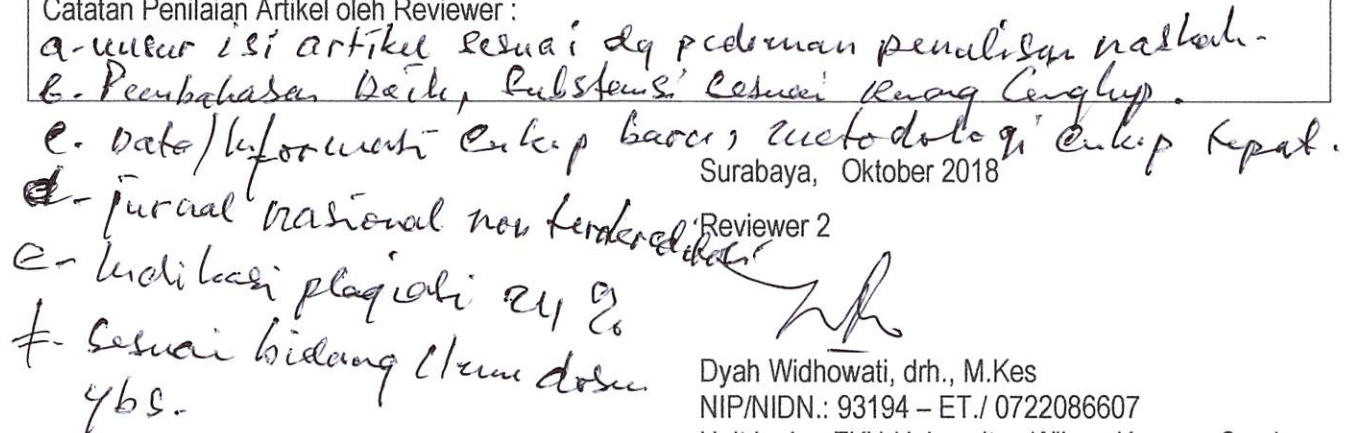 Catatan Penilaian Artikel oleh Reviewer :
a. unsur isi artikel sesuai dg pedoman penulisan naskah.
b. Pembahasan baik, substansi sesuai ruang lingkup.
c. Data/Informasi cukup baru, metodologi cukup tepat.
Surabaya, Oktober 2018
d. jurnal nasional non terakreditasi
Reviewer 2
e. Indikasi plagiasi 24 %
f. Sesuai bidang ilmu dosen
ybs.
Dyah Widhowati, drh., M.Kes
NIP/NIDN.: 93194 – ET./ 0722086607